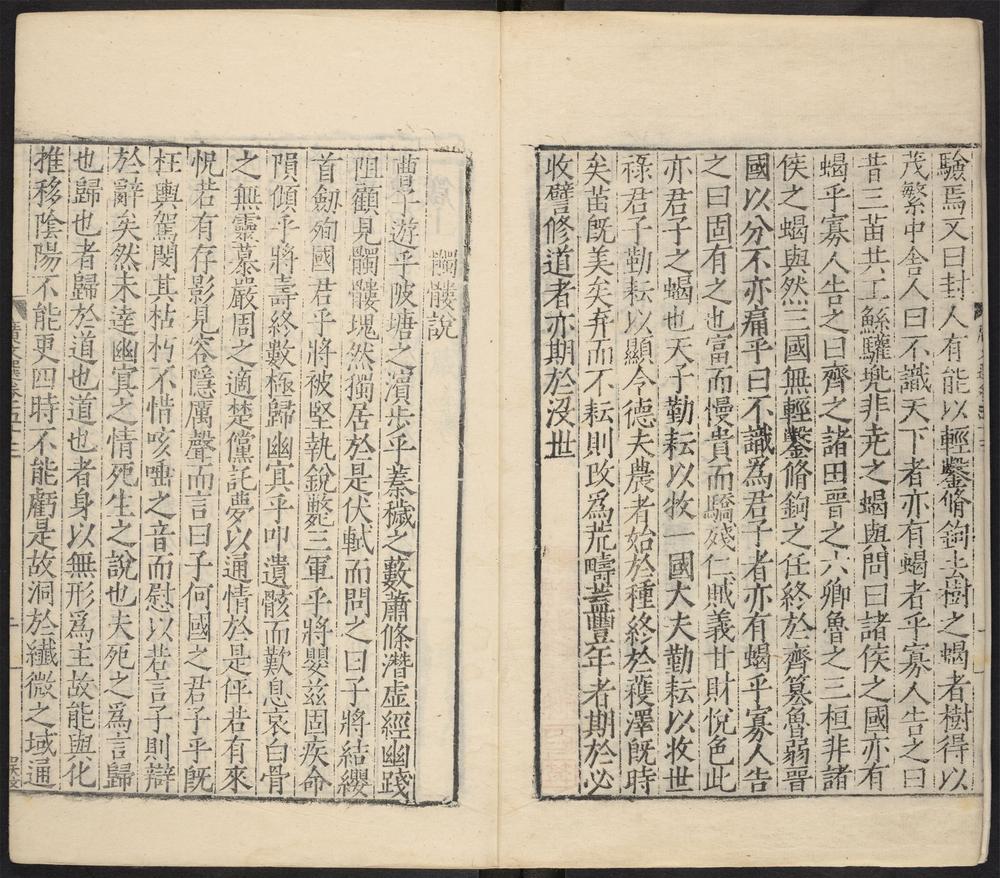 驗焉又曰封人有能以輕鑿脩鉤去樹之蝎者樹得以
茂繁中舍人曰不識天下者亦有蝎者乎寡人告之曰
昔三苗共工鯀驩兜非尭之蝎與問曰諸侯之國亦有
蝎乎寡人告之曰齊之諸田晋之六卿魯之三桓非諸
侯之蝎與然三國無輕鑿脩鉤之任終於齊簒魯弱晋
國以分不亦痛乎曰不識為君子者亦有蝎乎寡人告
之曰固有之也富而慢貴而驕殘仁賊義甘財悅色此
亦君子之蝎也天子勤耘以牧一國大夫勤耘以收世
祿君子勤耘以顯令德夫農者始於種終於穫澤既時
矣苗既美矣弃而不耘則改為荒疇葢豐年者期於必
收譬修道者亦期於沒世
髑髏說
曹子遊乎陂塘之濱步乎蓁穢之藪蕭條潛虛經幽踐
阻顧見髑髏塊然獨居於是伏軾而問之曰子將結纓
首劔殉國君乎將被堅執銳斃三軍乎將嬰兹固疾命
隕傾乎將壽終數極歸幽冥乎叩遺骸而歎息哀白骨
之無靈慕嚴周之適楚儻託夢以通情於是伻若有來
怳若有存影見容隱厲聲而言曰子何國之君子乎既
枉輿駕閔其枯朽不惜咳唾之音而慰以若言子則辯
於辭矣然未達幽冥之情死生之說也夫死之為言歸
也歸也者歸於道也道也者身以無形為主故能與化
推移陰陽不能更四時不能虧是故洞於纖微之域通